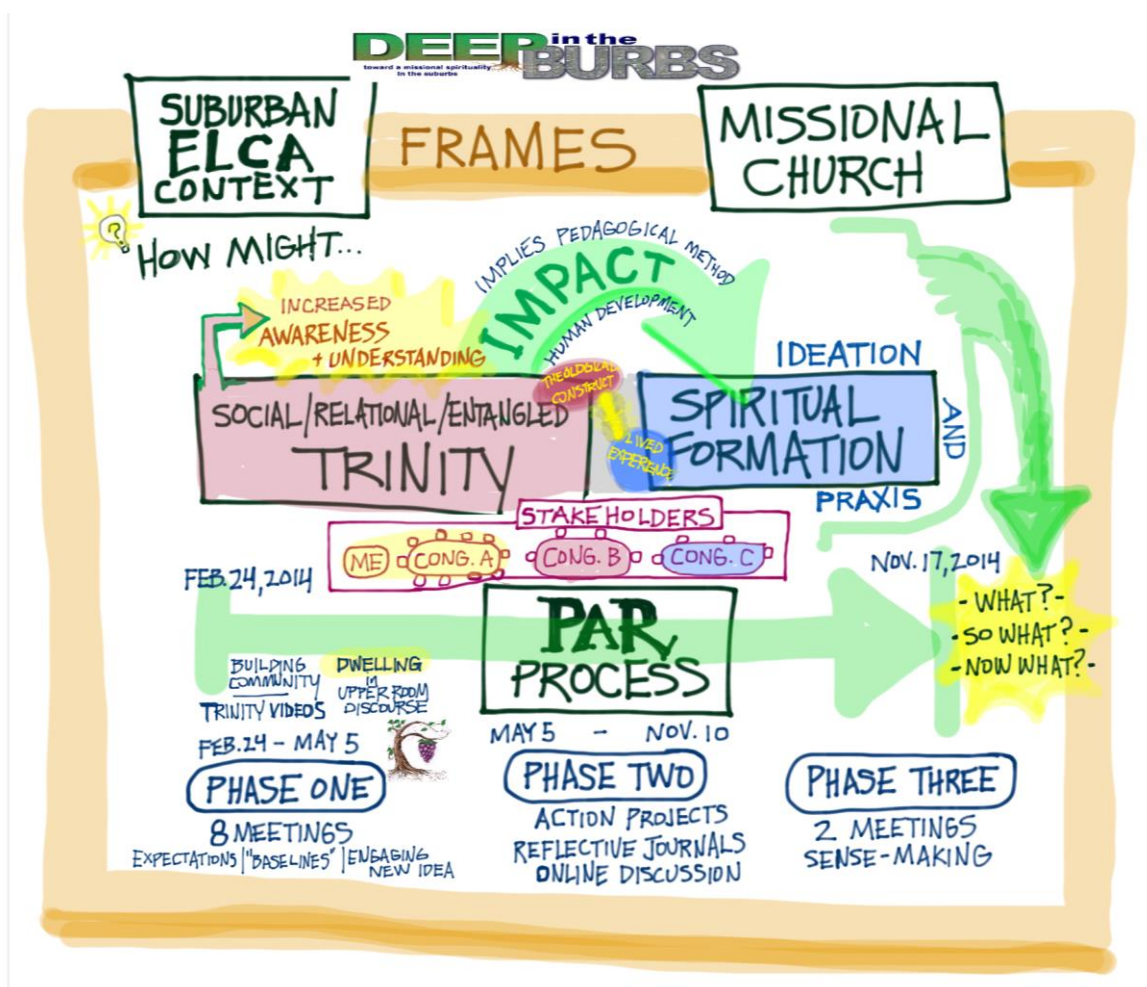 DEEP in the BURBS
toward a missional spirituality
in the suburbs
SUBURBAN
ELCA
CONTEXT
FRAMES
MISSIONAL
CHURCH
?
HOW MIGHT...
IMPLIES PEDAGOGICAL METHOD
IMPACT
HUMAN DEVELOPMENT
INCREASED
AWARENESS
+ UNDERSTANDING
THEOLOGICAL
CONSTRUCT
LIVED
EXPERIENCE
SOCIAL/RELATIONAL/ENTANGLED
TRINITY
IDEATION
SPIRITUAL
FORMATION
AND
PRAXIS
STAKEHOLDERS
ME CONG. A CONG. B CONG. C
FEB. 24, 2014
NOV. 17, 2014
- WHAT? -
- SO WHAT? -
- NOW WHAT? -
PAR
PROCESS
BUILDING
COMMUNITY
TRINITY VIDEOS
DWELLING
in
UPPER ROOM
DISCOURSE
FEB. 24 - MAY 5
PHASE ONE
8 MEETINGS
EXPECTATIONS | "BASELINES" | ENGAGING
NEW IDEA
MAY 5 - NOV. 10
PHASE TWO
ACTION PROJECTS
REFLECTIVE JOURNALS
ONLINE DISCUSSION
PHASE THREE
2 MEETINGS
SENSE-MAKING